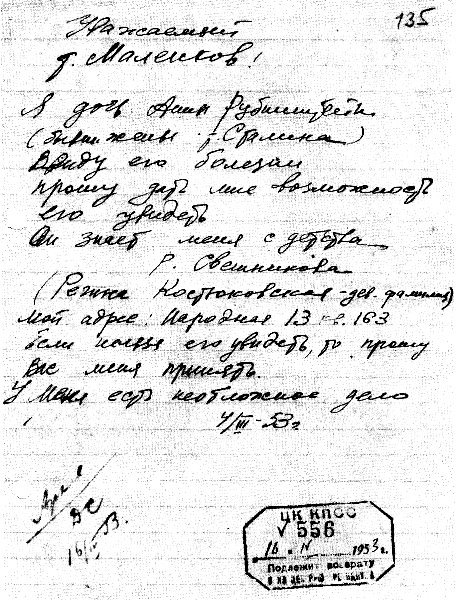 135
Уважаемый
т. Маленков!
Я дочь Анны Рубинштейн
(бывш жены т. Сталина)
Ввиду его болезни
прошу дать мне возможность
его увидеть
Он знает меня с детства
Р. Свешникова
(Регина Костюковская - дев. фамилия)
Мой адрес: Народная 13 кв. 163
Если нельзя его увидеть, то прошу
Вас меня принять.
У меня есть неотложное дело
4/III-53г
Архив
16/IV 53.
ЦК КПСС
V 556
16 IV 1953 г.
Подлежит возврату